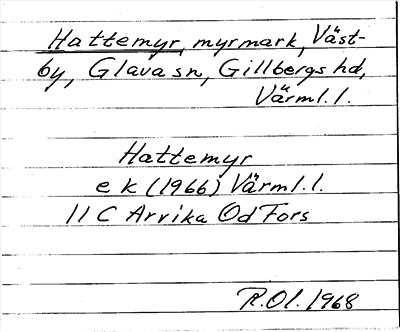 Hattemyr, myrmark, Väst-
by, Glava sn, Gillbergs hd,
Värml. l.
Hattemyr
e k (1966) Värml. l.
11 C Arvika Od Fors
R. Ol. 1968